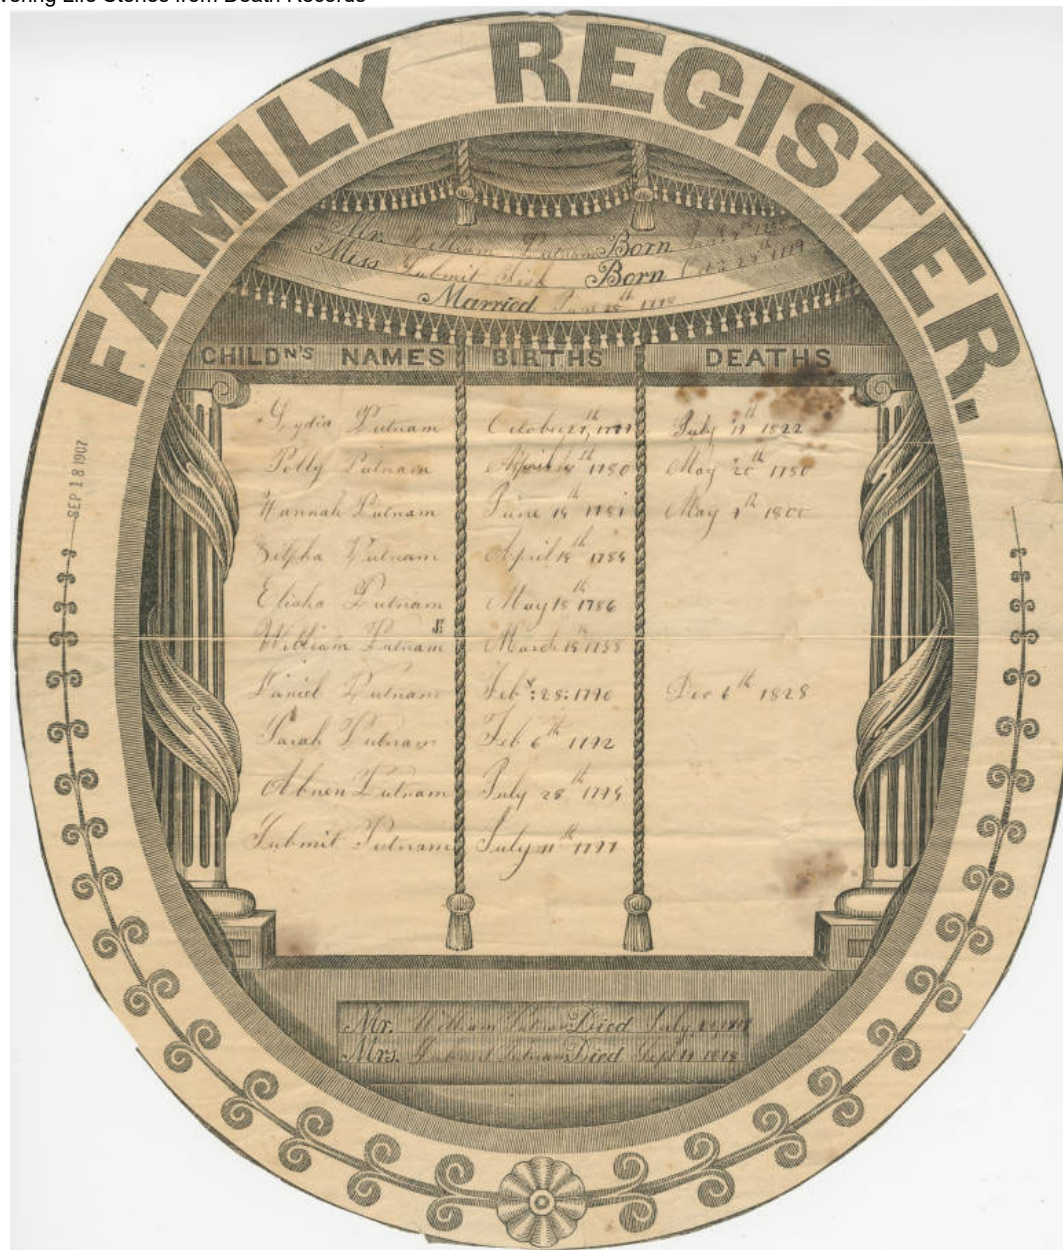 overing Life Stories from Death Records
FAMILY REGISTER.
Mr. William Putnam Born
Miss Submit Fisk Born Oct
Married 28th 1778
CHILDN'S NAMES BIRTHS DEATHS
Lydia Putnam October July 1822
Polly Putnam April 1780 May 20th 1780
Hannah Putnam June 18 May 1800
Zilpha Putnam April 18th
Elisha Putnam May 18th 1786
William Putnam Jr March 18th 1788
Daniel Putnam Feby: 28: 1790 Dec 6th 1828
Sarah Putnam Feb 6th 1792
Abner Putnam July 28th
Submit Putnam July 11th 1797
Mr. William Putnam Died July
Mrs. Submit Putnam Died Sept
SEP 18 1907